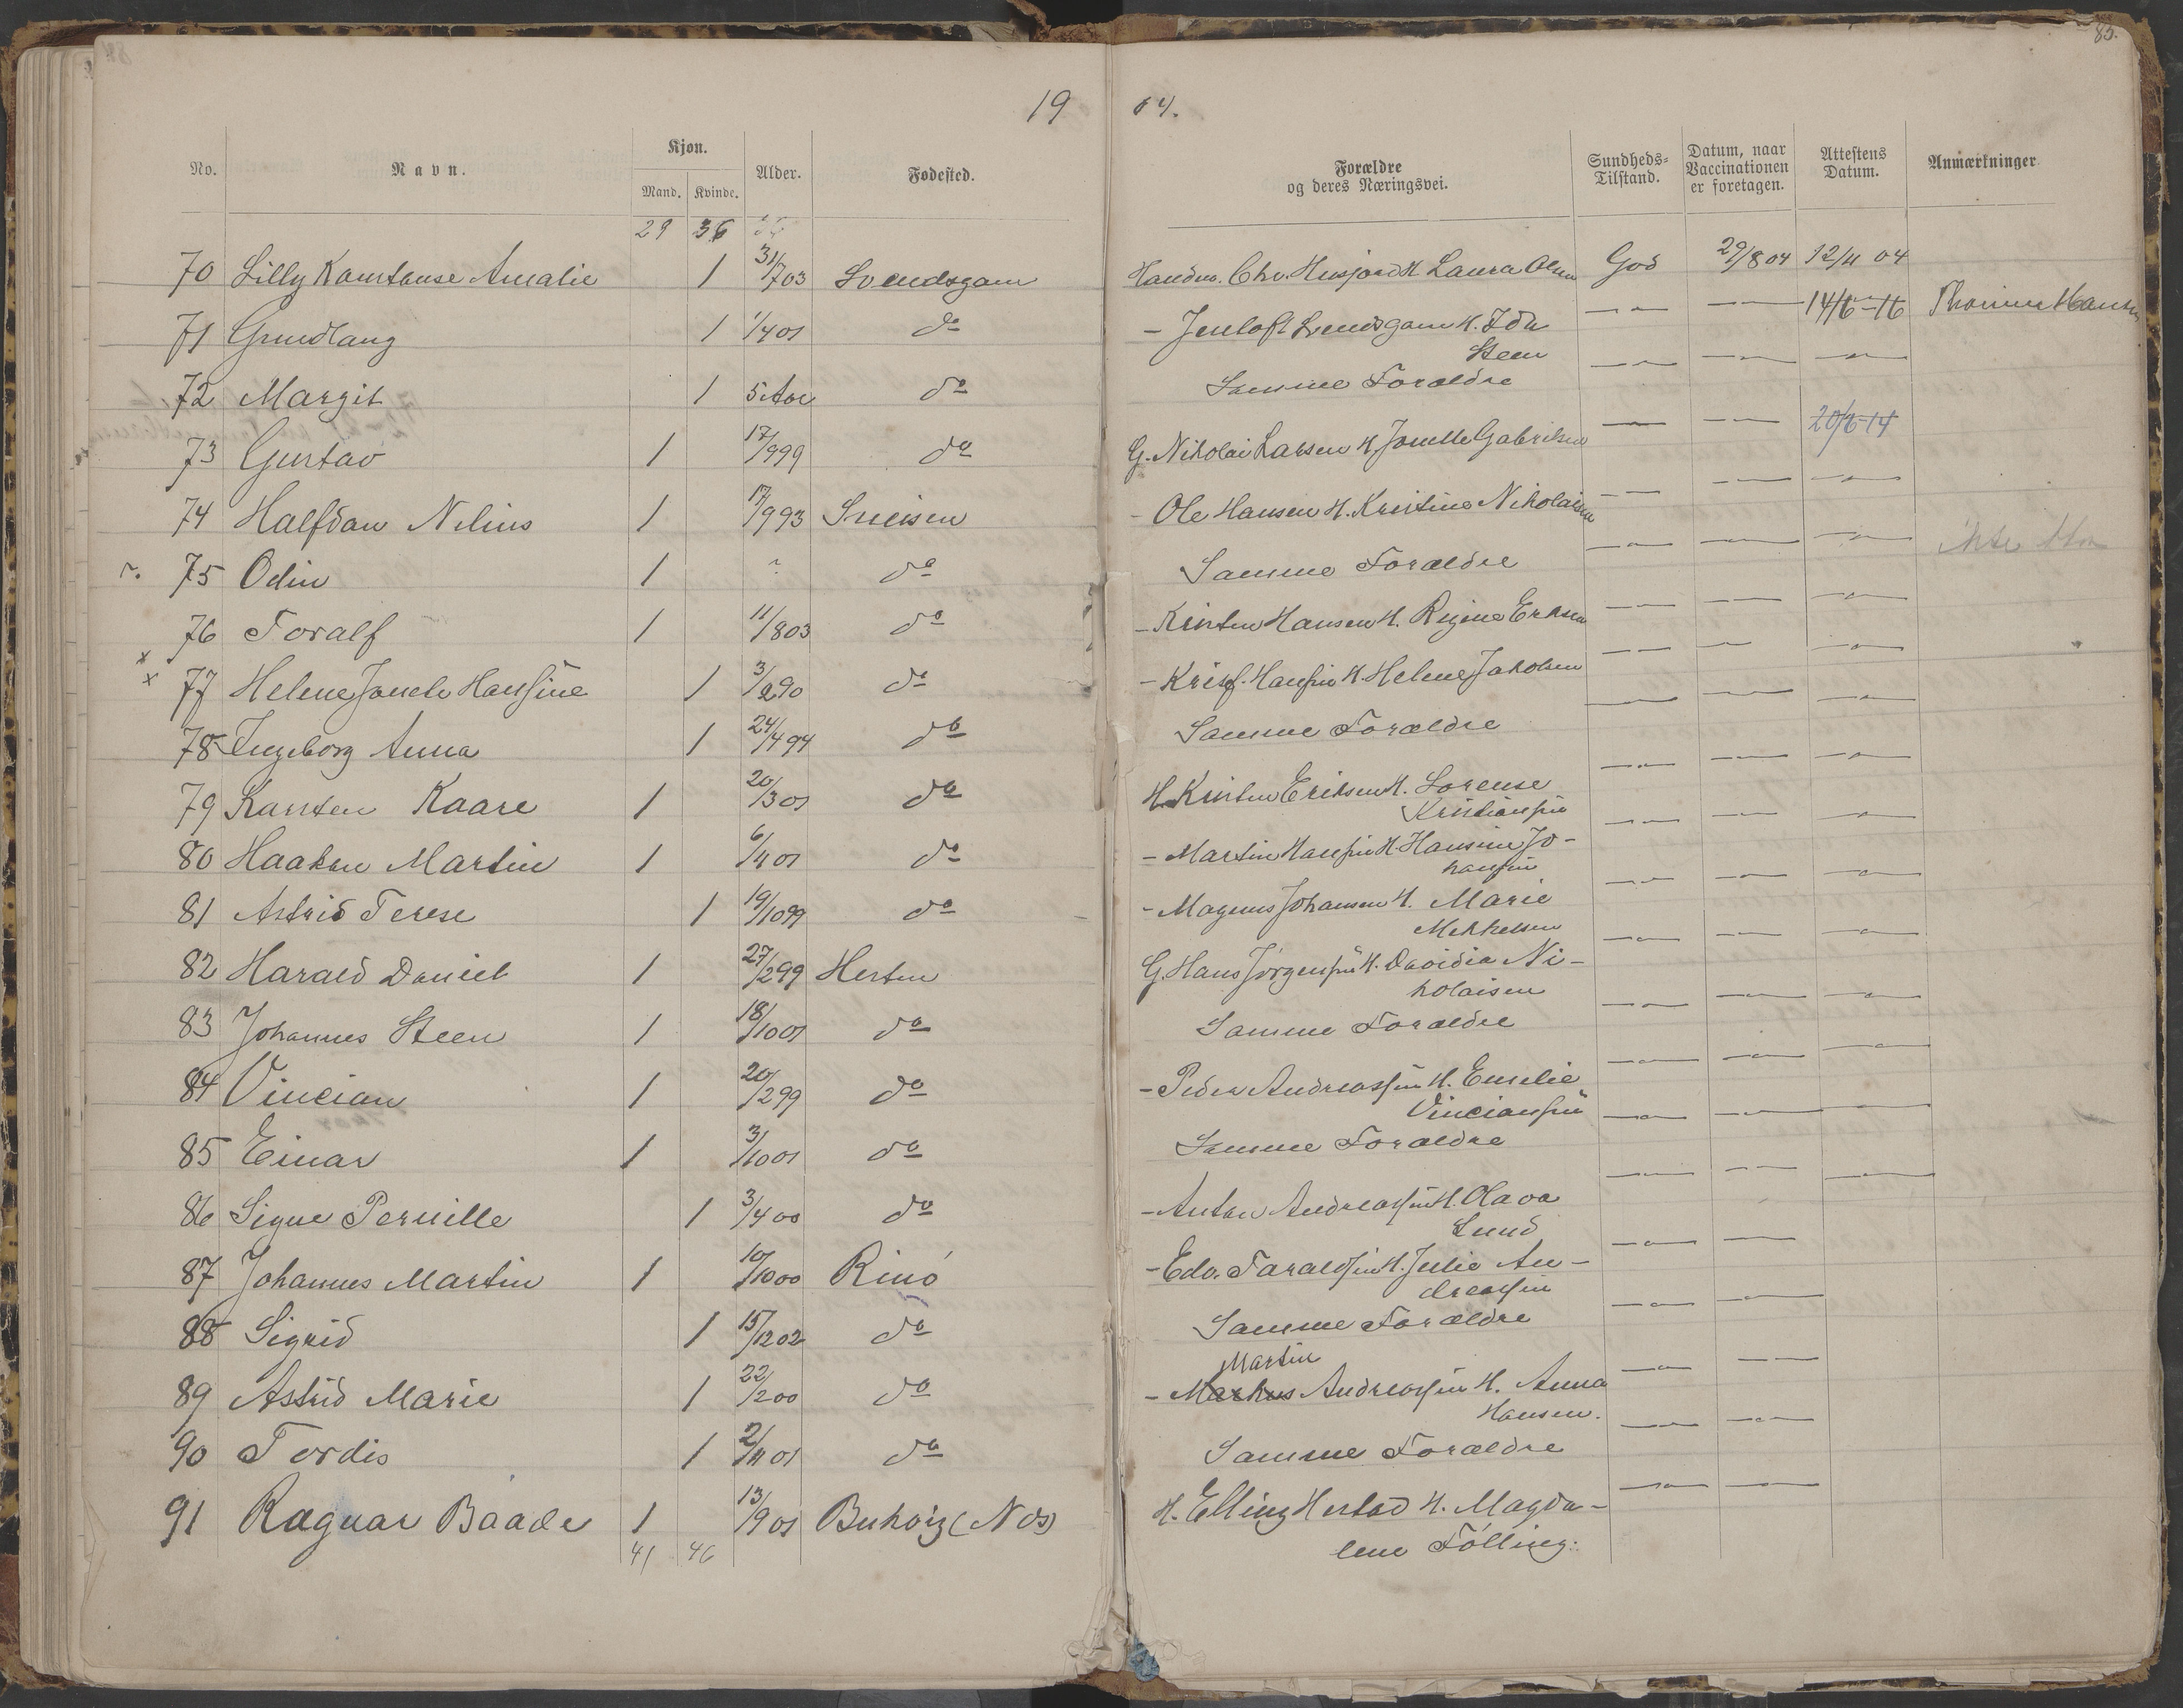 83.
19 04.
No. Navn. Kjøn. Mand. Kvinde. Alder. Fødested. Forældre og deres Næringsvei. Sundheds-Tilstand. Datum, naar Vaccinationen er foretagen. Attestens Datum. Anmærkninger
29 36
70 Lilly Konstanse Amalie 1 31/7 03 Svendsgam Handm. Chr. Husjord H. Laura Olsen God 29/8 04 12/11 04
71 Gundlaug 1 1/4 01 do - Jentoft Svendsgam H. Ida Steen — " — — " — 14/6-16
72 Margit 1 5 Aar do Samme Forældre — " — — " — — " —
73 Gustav 1 17/9 99 do G. Nikolai Larsen H. Jonette Gabrielsen — " — — " — 20/6-14
74 Halfdan Nilius 1 17/9 93 - Ole Hansen H. Kristine Nikolaisen — " — — " — — " —
r. 75 Odin 1 ? do Samme Forældre — " — — " — — " —
76 Toralf 1 11/8 03 do - Kristen Hansen H. Regine Eriksen — " — — " — — " —
x
x 77 Helene Jonele Hansine 1 3/2 90 do - Kristf. Hansen H. Helene Jakobsen — " — — " — — " —
78 Ingeborg Anna 1 24/4 94 do Samme Forældre — " — — " — — " —
79 Karsten Kaare 1 20/3 01 do H. Kristen Eriksen H. Lorense Kristiansen — " — — " — — " —
80 Haakon Martin 1 6/4 01 do - Martin Hansen H. Hansine Jo-
hansen — " — — " — — " —
81 Astrid Terese 1 19/10 99 do - Magnus Johansen H. Marie Mekkelsen — " — — " — — " —
82 Harald Daniel 1 27/2 99 Hersten G. Hans Jørgensen H. Davidia Ni-
kolaisen — " — — " — — " —
83 Johannes Steen 1 18/10 01 do Samme Forældre — " — — " — — " —
84 Vincian 1 20/2 99 do - Peder Andreassen H. Emelie Vinciansen — " — — " — — " —
85 Einar 1 3/10 01 do Samme Forældre — " — — " — — " —
86 Signe Pernille 1 3/4 00 do - Anton Andreassen H. Olava Lund — " — — " — — " —
87 Johannes Martin 1 10/10 00 Rinø - Edv. Taraldsen H. Julie An-
dreassen — " — — " —
88 Sigrid 1 15/12 02 do Samme Forældre — " — — " —
89 Astrid Marie 1 22/2 00 do Martin
- Markus Andreassen H. Anna Hansen. — " — — " —
90 Tordis 1 2/11 01 do Samme Forældre — " — — " —
91 Ragnar Baade 1 13/9 01 H. Elling Herstad H. Magda-
lene Følling. — " — — " —
41 46